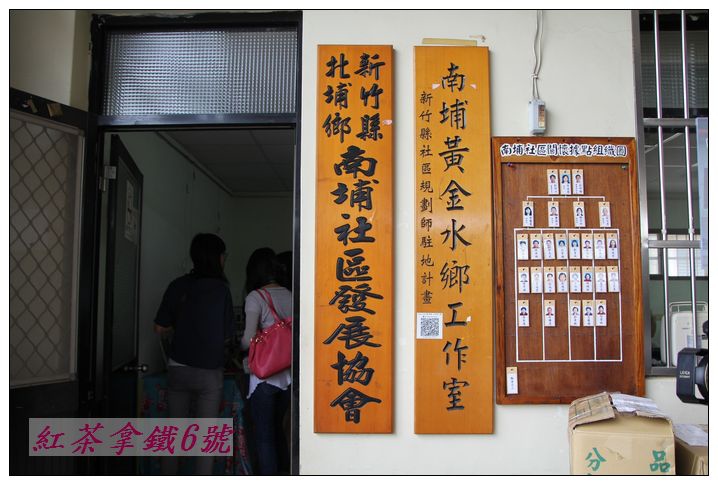 新竹縣
北埔鄉
南埔社區發展協會
南埔黃金水鄉工作室
新竹縣社區規劃師駐地計畫
南埔社區關懷據點組織圖
分 品
紅茶拿鐵6號